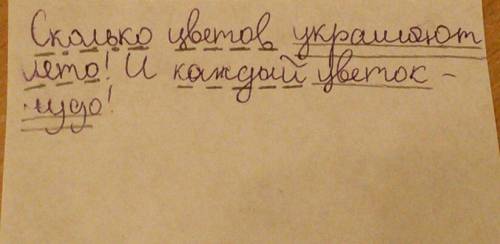 Сколько цветов украшают
лето! И каждый цветок -
чудо!